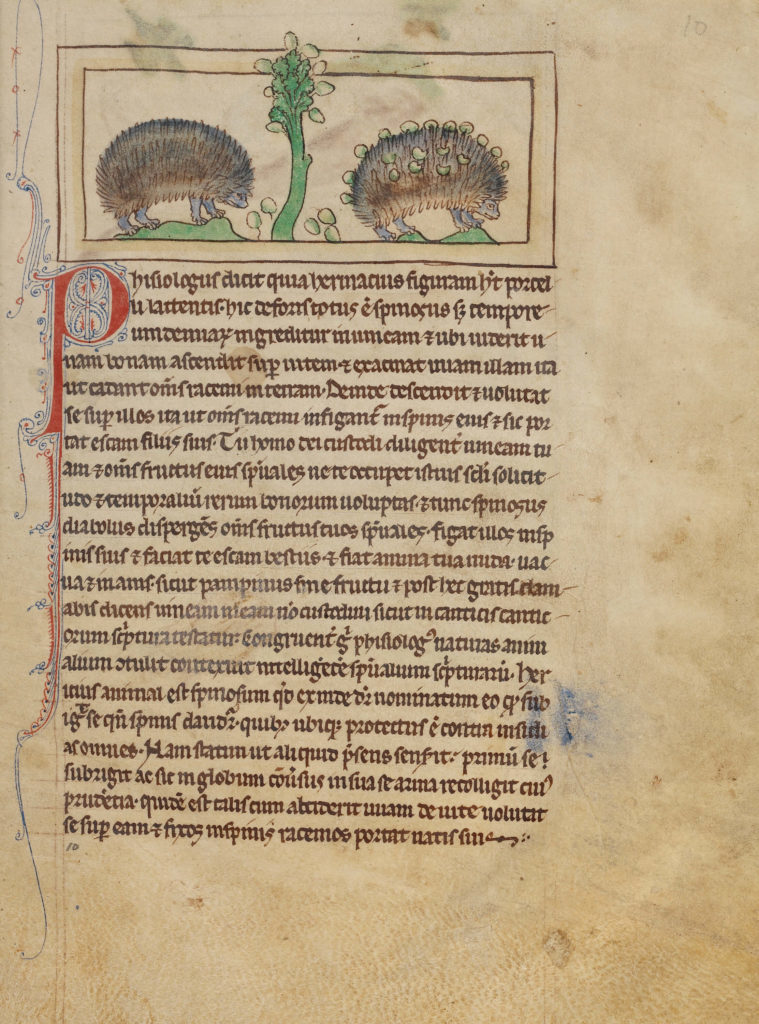 10
Phisiologus dicit quia herinacius figuram hʼt porcel
li lattentis. hic deforis totus ē spinosus sꝫ tempore
uindemiaꝝ ingreditur in uineam ⁊ ubi uiderit u
uam bonam ascendit suꝑ uitem ⁊ exacinat uuam illam ita
ut cadant om̄s racemi in terram. Deinde descendit ⁊ uolutat
se suꝑ illos ita ut om̄s racemi infigant᷑ in spinis eius ⁊ sic por
tat escam filiis suis. Tu homo dei custodi diligent᷑ uineam tu
am ⁊ om̄s fructus eius sp̄uales ne te occupet istius scl̄i solicit
udo ⁊ temporaliū rerum bonorum uoluptas. ⁊ tunc spinosus
diabolus dispergēs om̄s fructus tuos sp̄uales. figat illos in sp
inis suis ⁊ faciat te escam bestiis. ⁊ fiat anima tua nuda. uac
ua ⁊ inanis. sicut pampinus sine fructu ⁊ post hec gratis clam
abis dicens uineam meam nō custodiui sicut in canticis cantic
orum sc̄ptura testatur. Congruent᷑ gͦ phisiologꝰ naturas anim
alium ɔtulit contexuit intelligētie sp̄ualium sc̄pturarū. Her
itius animal est spinosum qd̄ exinde dr̄ nominatum eo qꝫ sub
igͥt se qn̄ spinis claudit᷑. quibꝫ ubiqꝫ protectus ē contra insidi
as omnes. Nam statim ut aliquid p̄sens senserit. primū se
subrigit ac sic in globum cōuersus in sua se arma recolligit cuiꝰ
prudētia. quidē est talis cum absciderit uuam de uite uolutat
se suꝑ eam ⁊ fixos in spinis racemos portat natis suis
10